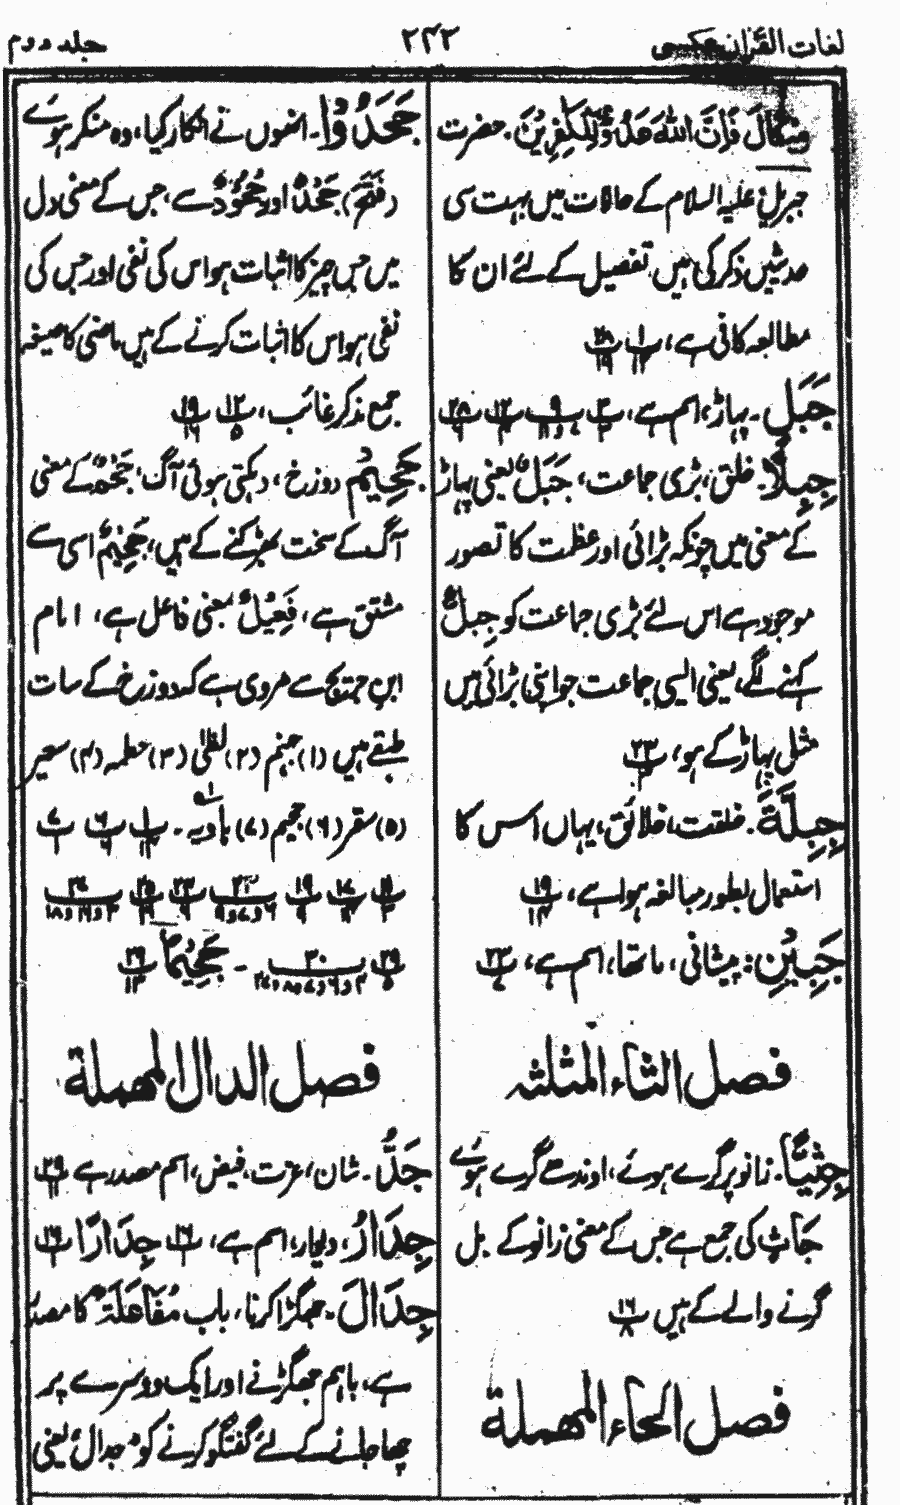 لغات القرآن عکسی ۲۴۲ جلد دوم
مِيْكَالَ فَاِنَّ اللّٰهَ عَدُوٌّ لِّلْكٰفِرِيْنَ۔ حضرت
جبریل علیہ السلام کے حالات میں بہت سی
حدیثیں ذکر کی ہیں، تفصیل کے لئے ان کا
مطالعہ کافی ہے،
جَبَلٍ۔ پہاڑ، اسم ہے،
جِبِلًّا۔ خلق، بڑی جماعت، جَبَلٌ یعنی پہاڑ
کے معنی میں چونکہ بڑائی اور عظمت کا تصور
موجود ہے اس لئے بڑی جماعت کو جِبِلٌّ
کہنے لگے، یعنی ایسی جماعت جو اپنی بڑائی میں
مثل پہاڑ کے ہو،
جِبِلَّةَ۔ خلقت، خلائق، یہاں اس کا
استعمال بطور مبالغہ ہوا ہے،
جَبِيْنِ: پیشانی، ماتھا، اسم ہے،
فصل الثاء المثلثہ
جِثِيًّا۔ زانو پر گرے ہوئے، اوندھے گرے ہوئے
جَاثٍ کی جمع ہے جس کے معنی زانو کے بل
گرنے والے کے ہیں
فصل الحاء المهملة
جَحَدُوْا۔ انھوں نے انکار کیا، وہ منکر ہوئے
(فَتَحَ) جَحْدٌ اور جُحُوْدٌ سے، جس کے معنی دل
میں جس چیز کا اثبات ہو اس کی نفی اور جس کی
نفی ہو اس کا اثبات کرنے کے ہیں ماضی کا صیغہ
جمع مذکر غائب،
جَحِيْمٌ دوزخ، دہکتی ہوئی آگ، جَحْمَةٌ کے معنی
آگ کے سخت بھڑکنے کے ہیں، جَحِيْمٌ اسی سے
مشتق ہے، فَعِيْلٌ بمعنی فاعل ہے، امام
ابن جریج سے مروی ہے کہ دوزخ کے سات
طبقے ہیں (۱) جہنم (۲) لظٰی (۳) حطمہ (۴) سعیر
(۵) سقر (۶) جحیم (۷) ہاویہ۔
جَحِيْمًا
فصل الدال المهملة
جَدُّ۔ شان، عزت، فیض، اسم مصدر ہے
جِدَارٌ، دیوار، اسم ہے، جِدَارًا
جِدَالَ۔ جھگڑا کرنا، باب مُفَاعَلَةٌ کا مصدر
ہے، باہم جھگڑنے اور ایک دوسرے پر
چھا جانے کے لئے گفتگو کرنے کو جدال، یعنی